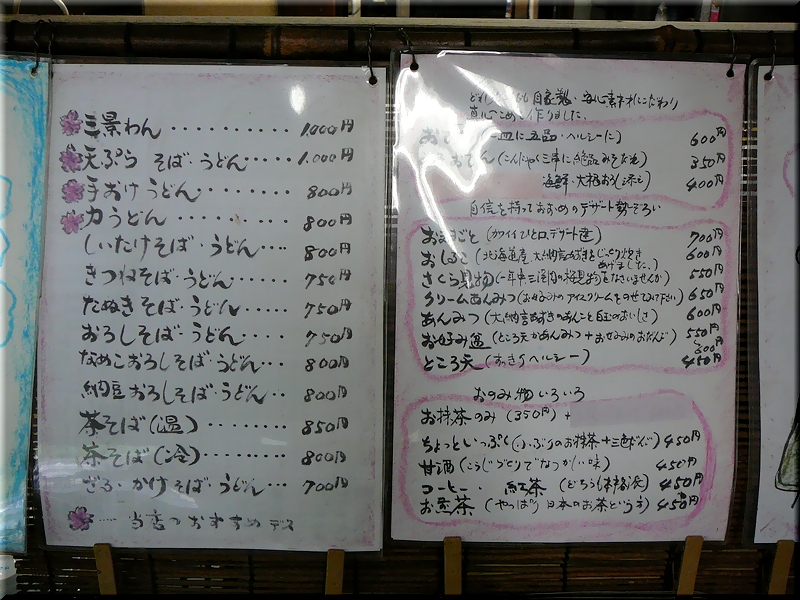 三景わん ‥‥‥‥‥ 1,000円
天ぷら そば・うどん‥‥‥ 1,000円
手おけうどん‥‥‥‥ 800円
力うどん ‥‥‥‥‥ 800円
しいたけそば・うどん‥‥ 800円
きつねそば・うどん‥‥‥ 750円
たぬきそば・うどん‥‥‥ 750円
おろしそば・うどん‥‥‥ 750円
なめこおろしそば・うどん‥‥ 800円
納豆おろしそば・うどん‥ 800円
茶そば(温)‥‥‥‥ 850円
茶そば(冷)‥‥‥‥ 800円
ざる・かけそば・うどん‥‥ 700円
‥‥ 当店のおすすめデス
自家製・
作りました。
一皿に五品・ヘルシーに) 600円
おでん (こんにゃく三串に絶品みそだれ) 350円
海鮮・大根おろし添え) 400円
自信を持っておすすめのデザート勢ぞろい
おままごと (カワイイひと口デザート達) 700円
おしるこ (北海道産大納言あずきをじっくり炊きあげました。) 600円
さくら見物 550円
クリームあんみつ (お好みのアイスクリームをのせて下さい) 650円
あんみつ (大納言あずきのあんこと白玉のおいしさ) 600円
お好み盆 (ところ天かあんみつ+お好みのおだんご) 550円
ところ天 (すっきりヘルシー) 450円
おのみ物いろいろ
お抹茶のみ (350円) +
ちょっといっぷく (小ぶりのお抹茶+三色だんご) 450円
甘酒 (こうじづくりでなつかしい味) 450円
コーヒー・ 紅茶 (どちらも本格派) 450円
お煎茶 (やっぱり日本のお茶という方) 450円